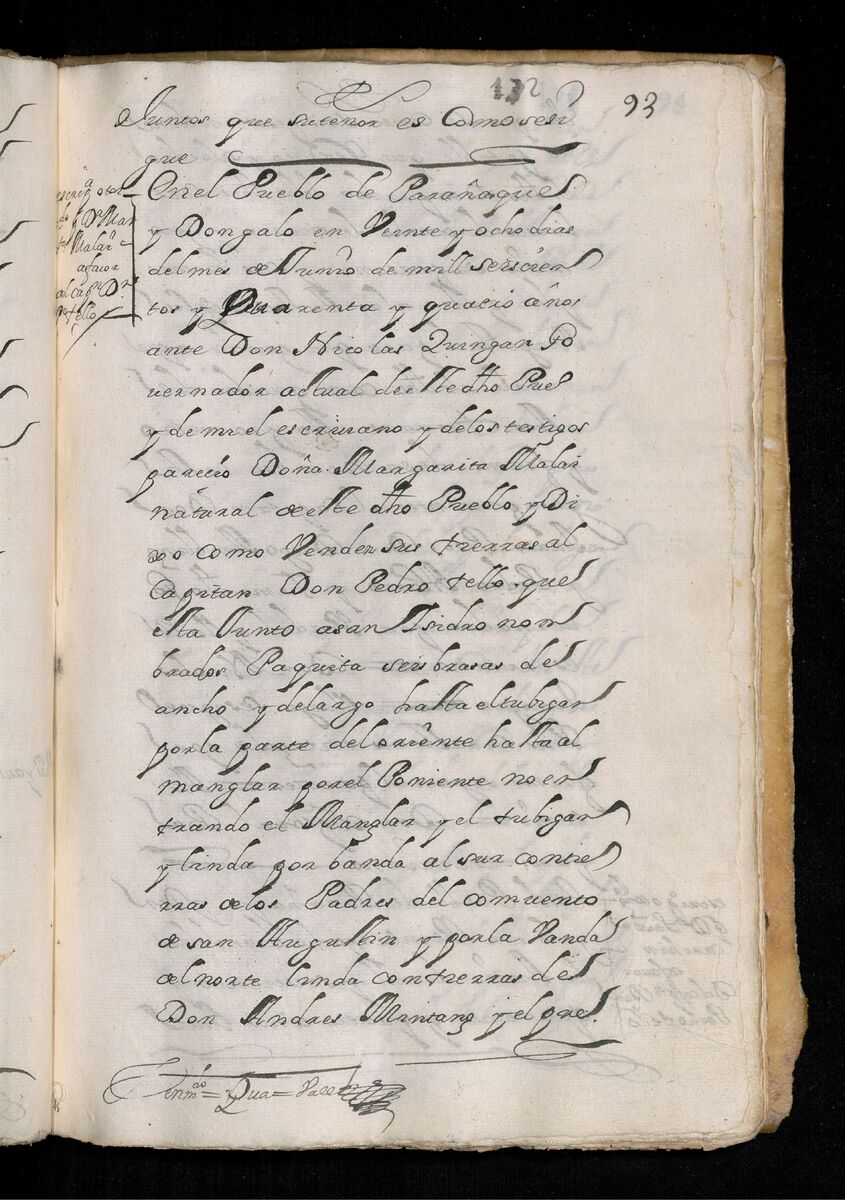 132
93
Juntos que sutenor es Comosesi
gue
escriª otor
da Dª Mar
ta Malari
afavor
al capⁿ Dⁿ
Pº tello
Enel Pueblo de Parañaque
y Dongalo en Veinte y ochodias
delmes de Junio de mill seiscien
tos y Quarenta y quatro años
ante Don Nicolas Quingan Go
uernador actual deeste dho Pueº
y demi el escriuano y delostestigos
pareció Doña Margarita Malari
natural deeste dho Pueblo y Di
xo como Venden sus tierras al
Capitan Don Pedro tello que
esta Junto asan Isidro nom
brados Paquita seis brasas de
ancho y delargo hasta eltubigan
porla parte deloriente hasta al
manglar porel Poniente no en
trando el Manglar y el tubigan
y linda por banda al sur contie
rras delos Padres del comuento
de san Augustin y porla Vanda
del norte linda contierras de
Don Andres Mintang y el pre
enmdº = Qua = Valeº